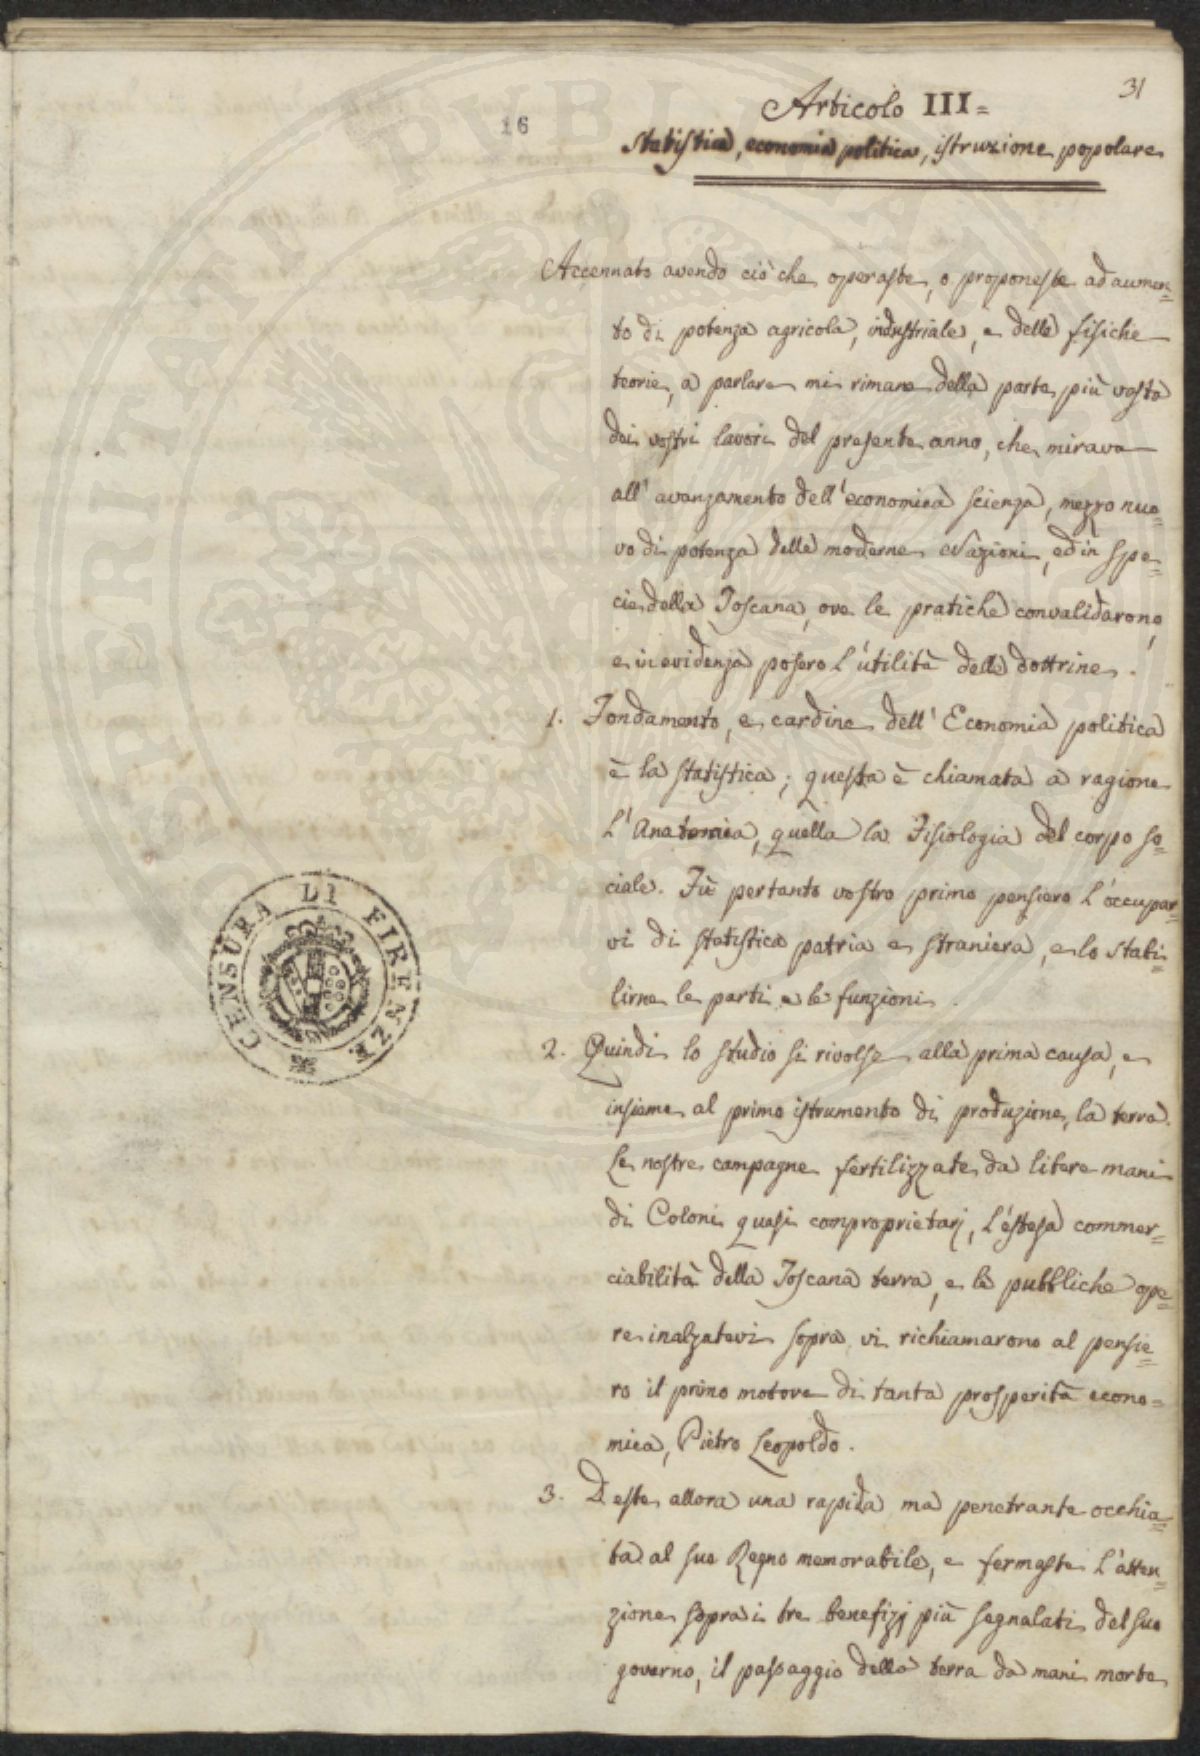 31
16
Articolo III=
Statistica, economia politica, istruzione popolare
Accennato avendo ciò che operaste, o proponeste ad aumen=
to di potenza agricola, industriale, e delle fisiche
teorie, a parlare mi rimane della parte più vasta
dei vostri lavori del presente anno, che mirava
all' avanzamento dell' economica scienza, mezzo nuo=
vo di potenza delle moderne Nazioni, ed in spe=
cie della Toscana, ove le pratiche convalidarono,
e in evidenza posero l'utilità delle dottrine.
1. Fondamento, e cardine dell' Economia politica
è la statistica; questa è chiamata a ragione
l'Anatomia, quella la Fisiologia del corpo so=
ciale. Fù pertanto vostro primo pensiero l'occupar=
vi di statistica patria e straniera, e lo stabi=
lirne le parti e le funzioni.
2. Quindi lo studio si rivolse alla prima causa, e
insieme al primo istrumento di produzione, la terra.
Le nostre campagne fertilizzate da libere mani
di Coloni quasi comproprietarj, l'estesa commer=
ciabilità della Toscana terra, e le pubbliche ope=
re inalzatevi sopra vi richiamarono al pensie=
ro il primo motore di tanta prosperità econo=
mica, Pietro Leopoldo.
3. Deste allora una rapida ma penetrante occhia=
ta al suo Regno memorabile, e fermaste l'atten=
zione sopra i tre benefizj più segnalati del suo
governo, il passaggio della terra da mani morte
CENSURA DI FIRENZE